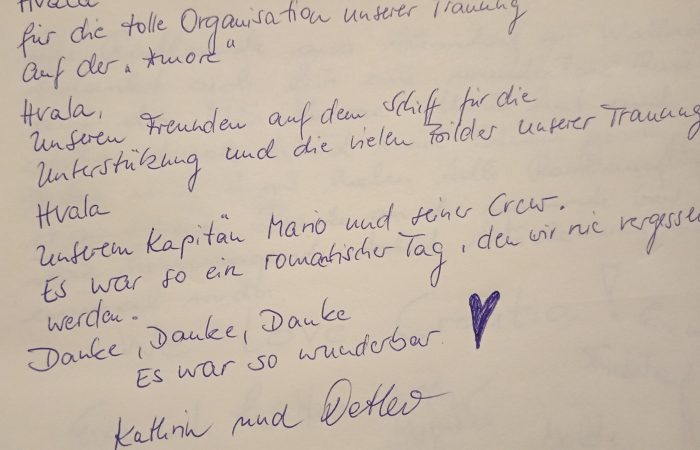 Hvala
für die tolle Organisation unserer Trauung
auf der „*more“
Hvala,
Unseren Freunden auf dem Schiff für die
Unterstützung und die vielen Bilder unserer Trauung
Hvala
Unserem Kapitän Mario und seiner Crew.
Es war so ein romantischer Tag, den wir nie vergessen
werden.
Danke, Danke, Danke
Es war so wunderbar.
Kathrin und Detlev